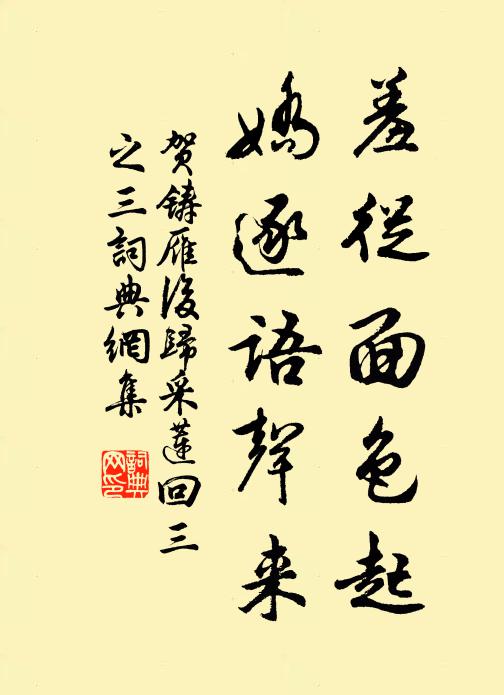 羞從面色起
嬌逐語聲来
贺鑄雁後歸采蓮回三
之三詞典網集
詞典网印